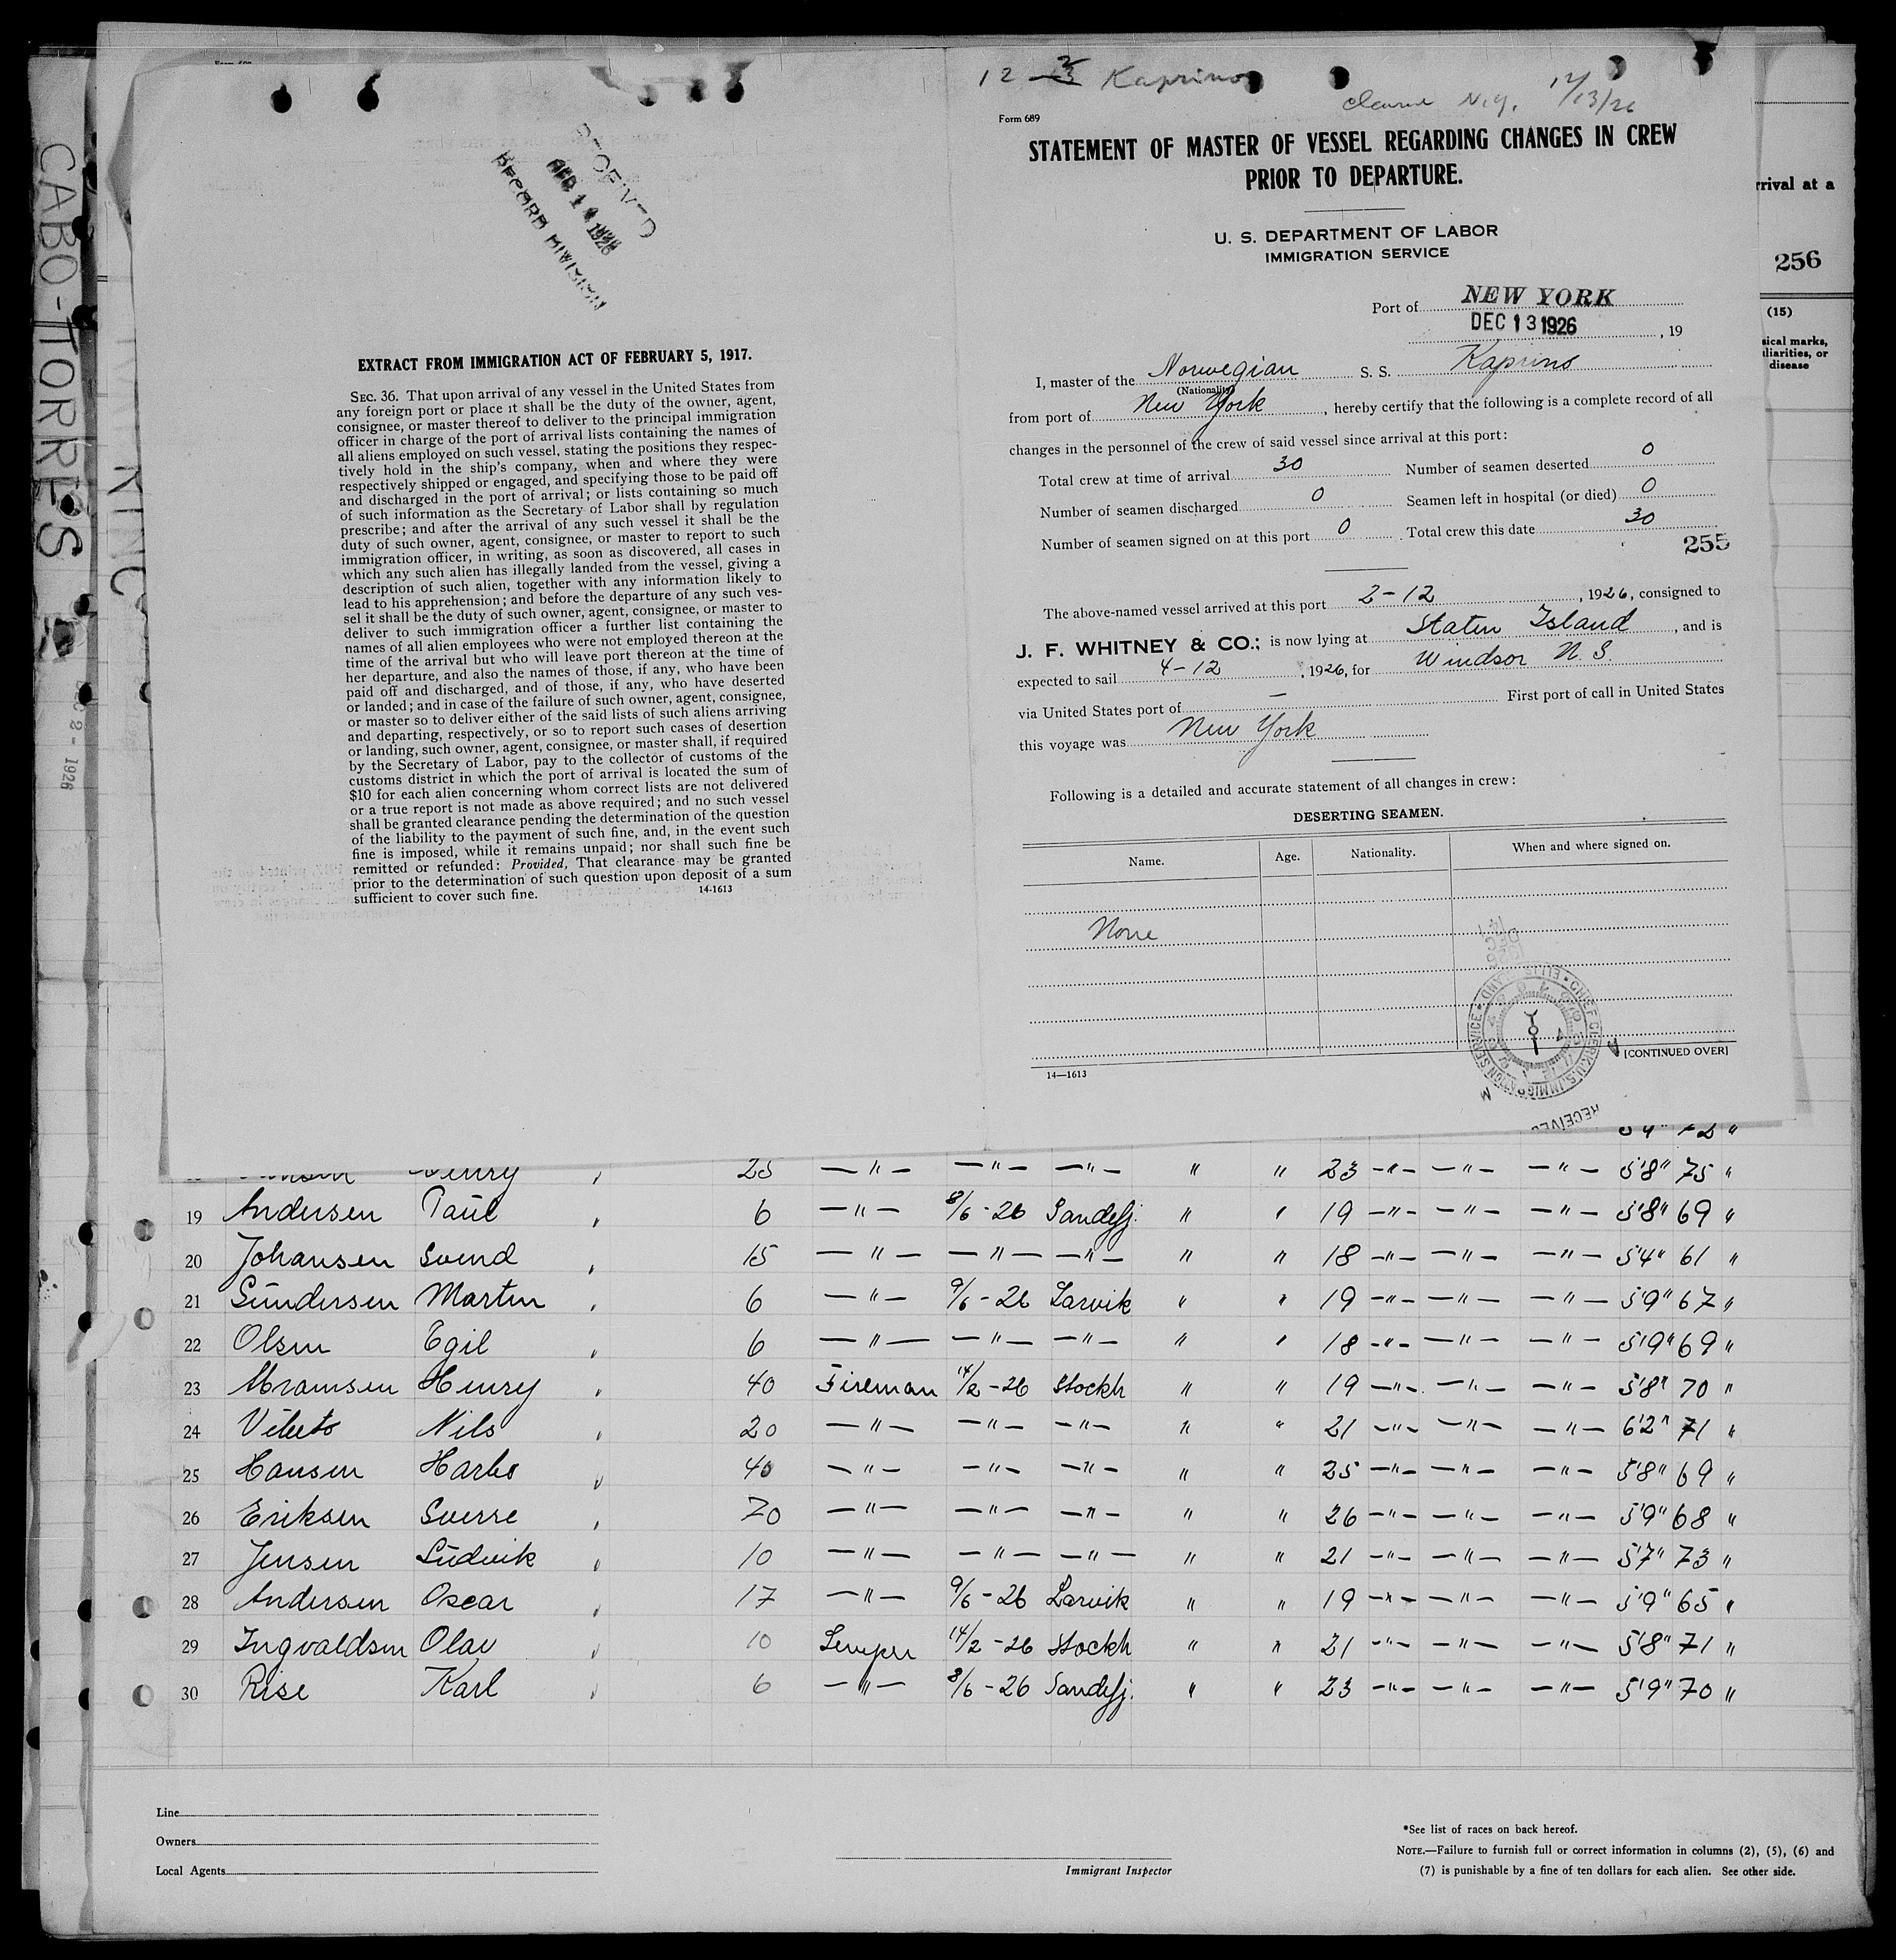 CABO-TORRES
DEC 2 - 1926
KING
RECEIVED
1926
RECORD DIVISION
EXTRACT FROM IMMIGRATION ACT OF FEBRUARY 5, 1917.
SEC. 36. That upon arrival of any vessel in the United States from
any foreign port or place it shall be the duty of the owner, agent,
consignee, or master thereof to deliver to the principal immigration
officer in charge of the port of arrival lists containing the names of
all aliens employed on such vessel, stating the positions they respec-
tively hold in the ship's company, when and where they were
respectively shipped or engaged, and specifying those to be paid off
and discharged in the port of arrival; or lists containing so much
of such information as the Secretary of Labor shall by regulation
prescribe; and after the arrival of any such vessel it shall be the
duty of such owner, agent, consignee, or master to report to such
immigration officer, in writing, as soon as discovered, all cases in
which any such alien has illegally landed from the vessel, giving a
description of such alien, together with any information likely to
lead to his apprehension; and before the departure of any such ves-
sel it shall be the duty of such owner, agent, consignee, or master to
deliver to such immigration officer a further list containing the
names of all alien employees who were not employed thereon at the
time of the arrival but who will leave port thereon at the time of
her departure, and also the names of those, if any, who have been
paid off and discharged, and of those, if any, who have deserted
or landed; and in case of the failure of such owner, agent, consignee,
or master so to deliver either of the said lists of such aliens arriving
and departing, respectively, or so to report such cases of desertion
or landing, such owner, agent, consignee, or master shall, if required
by the Secretary of Labor, pay to the collector of customs of the
customs district in which the port of arrival is located the sum of
$10 for each alien concerning whom correct lists are not delivered
or a true report is not made as above required; and no such vessel
shall be granted clearance pending the determination of the question
of the liability to the payment of such fine, and, in the event such
fine is imposed, while it remains unpaid; nor shall such fine be
remitted or refunded: Provided, That clearance may be granted
prior to the determination of such question upon deposit of a sum
sufficient to cover such fine. 14-1613
12 - 2 Kaprino
N.Y. 12/13/26
Form 689
STATEMENT OF MASTER OF VESSEL REGARDING CHANGES IN CREW
PRIOR TO DEPARTURE.
U. S. DEPARTMENT OF LABOR
IMMIGRATION SERVICE
Port of NEW YORK
DEC 13 1926, 19
I, master of the Norwegian S. S. Kaprino
(Nationality)
from port of New York, hereby certify that the following is a complete record of all
changes in the personnel of the crew of said vessel since arrival at this port:
Total crew at time of arrival 30 Number of seamen deserted 0
Number of seamen discharged 0 Seamen left in hospital (or died) 0
Number of seamen signed on at this port 0 Total crew this date 30
255
The above-named vessel arrived at this port 2-12, 1926, consigned to
J. F. WHITNEY & CO.; is now lying at Staten Island, and is
expected to sail 4-12, 1926, for Windsor N. S.
via United States port of — First port of call in United States
this voyage was New York
Following is a detailed and accurate statement of all changes in crew:
DESERTING SEAMEN.
Name. Age. Nationality. When and where signed on.
None
1926
DEC
14
CHIEF CLERK, U.S. IMMIGRATION SERVICE • ELLIS ISLAND •
[CONTINUED OVER]
14—1613
RECEIVED
rrival at a
256
(15)
sical marks,
uliarities, or
disease
Henry 25 —"— —"— —"— " " 23 —"— —"— —"— 5'8" 75 "
19 Andersen Paul 6 —"— 8/6-26 Sandefj. " " 19 —"— —"— —"— 5'8" 69 "
20 Johansen Svend 15 —"— —"— —"— " " 18 —"— —"— —"— 5'4" 61 "
21 Gundersen Martin 6 —"— 9/6-26 Larvik " " 19 —"— —"— —"— 5'9" 67 "
22 Olsen Egil 6 —"— —"— —"— " " 18 —"— —"— —"— 5'9" 69 "
23 Abramsen Henry 40 Fireman 14/2-26 Stockh " " 19 —"— —"— —"— 5'8" 70 "
24 Nils 20 —"— —"— —"— " " 21 —"— —"— —"— 6'2" 71 "
25 Hansen 40 —"— —"— —"— " " 25 —"— —"— —"— 5'8" 69 "
26 Eriksen Sverre 20 —"— —"— —"— " " 26 —"— —"— —"— 5'9" 68 "
27 Jensen Ludvik 10 —"— —"— —"— " " 21 —"— —"— —"— 5'7" 73 "
28 Andersen Oscar 17 —"— 9/6-26 Larvik " " 19 —"— —"— —"— 5'9" 65 "
29 Ingvaldsen Olav 10 14/2-26 Stockh " " 21 —"— —"— —"— 5'8" 71 "
30 Rise Karl 6 —"— 8/6-26 Sandefj. " " 23 —"— —"— —"— 5'9" 70 "
Line
Owners
Local Agents
Immigrant Inspector
*See list of races on back hereof.
NOTE.—Failure to furnish full or correct information in columns (2), (5), (6) and
(7) is punishable by a fine of ten dollars for each alien. See other side.